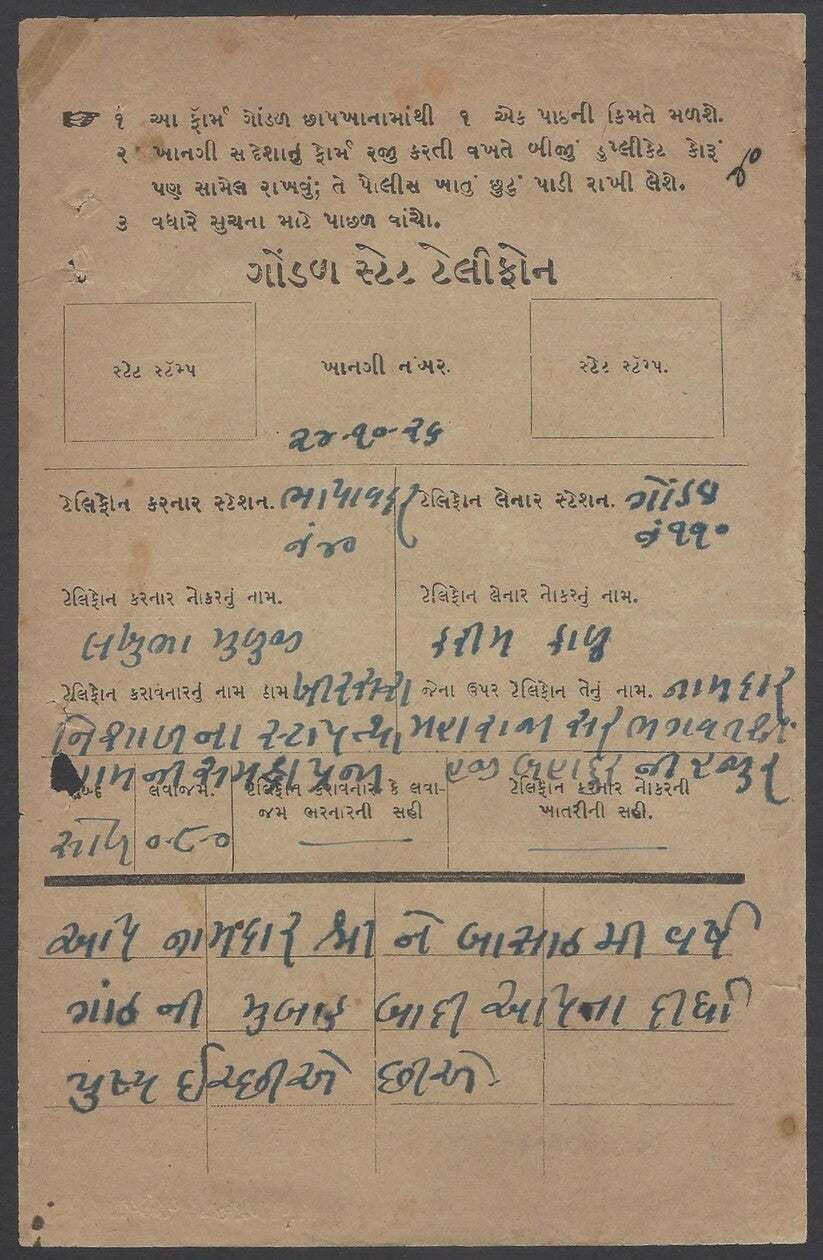 ૧ આ ફૅાર્મ ગોંડળ છાપખાનામાંથી ૧ એક પાઇની કિમતે મળશે.
૨ ખાનગી સંદેશાનું ફેાર્મ રજી કરતી વખતે બીજીં ડુપ્લીકેટ કેારૂં
પણ સામેલ રાખવું; તે પેાલીસ ખાતું છુટું પાડી રાખી લેશે.
૩ વધારે સુચના માટે પાછળ વાંચેા.
ગોંડળ સ્ટેટ ટેલીફોન
સ્ટેટ સ્ટૅમ્પ ખાનગી નંબર. સ્ટેટ સ્ટૅમ્પ.
૨૪-૧૦-૨૬
ટેલિફેાન કરનાર સ્ટેશન. ભાયાવદર ટેલિફેાન લેનાર સ્ટેશન. ગોંડળ
નં ૪૦ નં ૧૧૦
ટેલિફેાન કરનાર નેાકરનું નામ. ટેલિફેાન લેનાર નેાકરનું નામ.
લખુભા મુળુજી કરીમ કાળુ
ટેલિફેાન કરાવનારનું નામ ઠામ ખીરસરા જેના ઉપર ટેલિફેાન તેનું નામ. નામદાર
નિશાળના સ્ટાફ તથા મહારાજા સર ભગવતસીં
ગામની સમસ્ત પ્રજા હજી બહાદુર ની હજુર
શબ્દ લવાજમ. ટેલિફેાન કરાવનાર કે લવા- ટેલિફેાન કરનાર નેાકરની
જમ ભરનારની સહી ખાતરીની સહી.
સોળ ૦-૮-૦
આપ નામદાર શ્રી ને બાસઠ મી વર્ષ
ગાંઠ ની મુબારક બાદી આપના દીર્ઘા
યુષ્ય ઈચ્છીએ છીએ